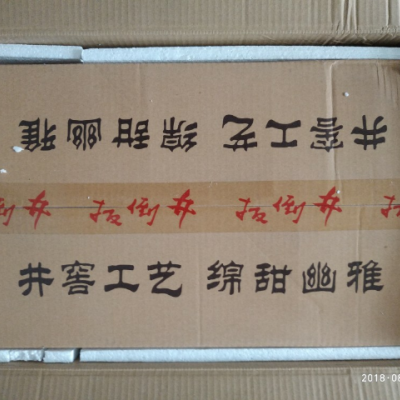 井窖工艺 绵甜幽雅
扳倒井 扳倒井
井窖工艺 绵甜幽雅
2018-0